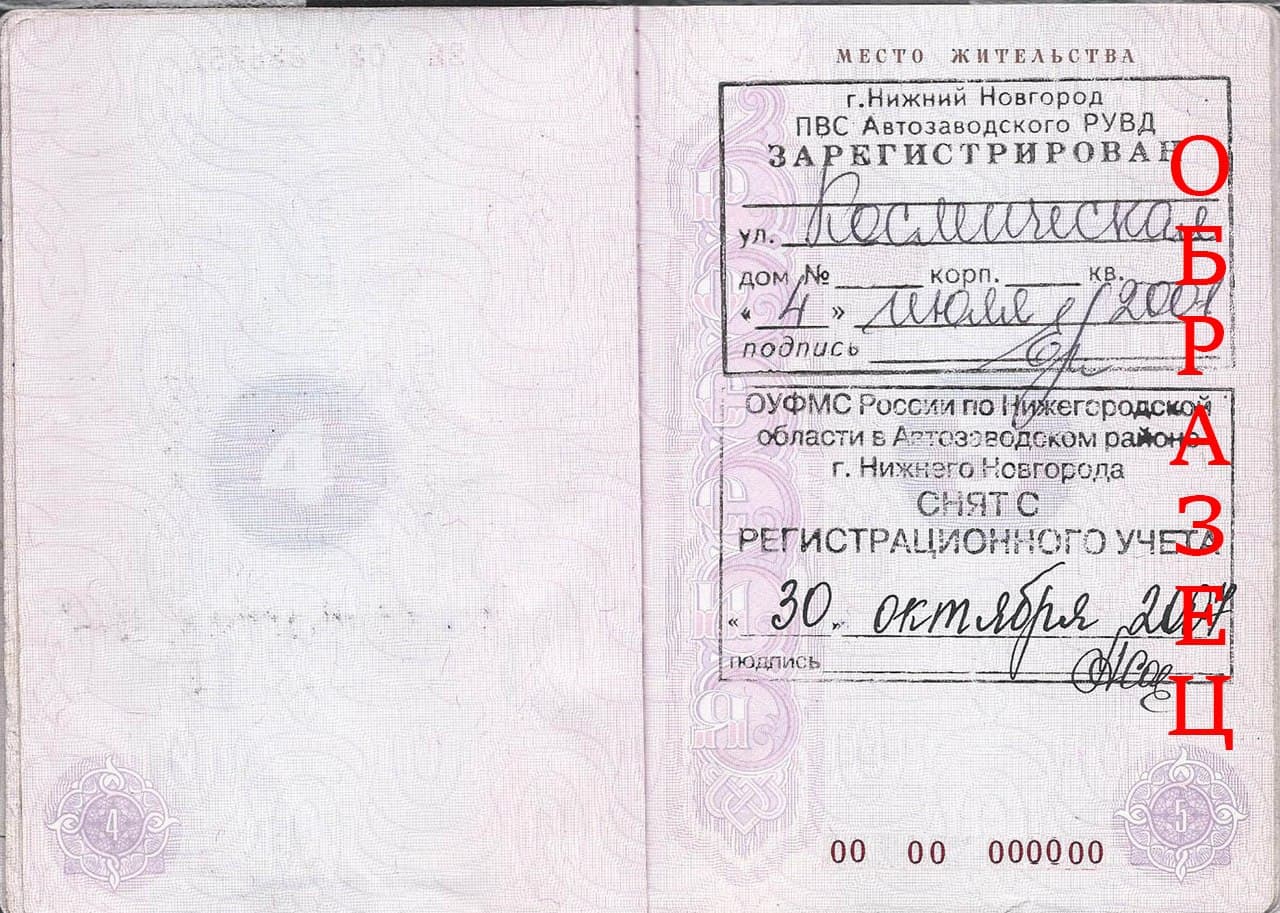 МЕСТО ЖИТЕЛЬСТВА
г.Нижний Новгород
ПВС Автозаводского РУВД
ЗАРЕГИСТРИРОВАН
ул. Космическая
дом № корп. кв.
« 4 » июля 2001
подпись
ОУФМС России по Нижегородской
области в Автозаводском районе
г. Нижнего Новгорода
СНЯТ С
РЕГИСТРАЦИОННОГО УЧЕТА
« 30 » октября 2007
подпись
ОБРАЗЕЦ
4
4
5
00 00 000000